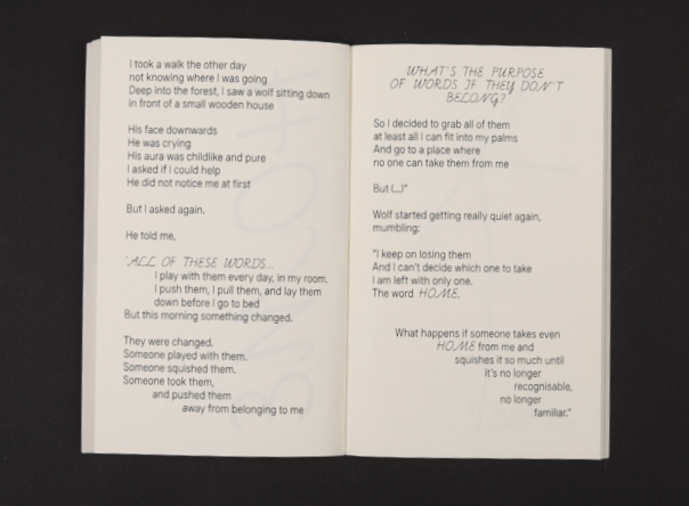 I took a walk the other day
not knowing where I was going
Deep into the forest, I saw a wolf sitting down
in front of a small wooden house
His face downwards
He was crying
His aura was childlike and pure
I asked if I could help
He did not notice me at first
But I asked again.
He told me,
"ALL OF THESE WORDS...
I play with them every day, in my room.
I push them, I pull them, and lay them
down before I go to bed
But this morning something changed.
They were changed.
Someone played with them.
Someone squished them.
Someone took them,
and pushed them
away from belonging to me
WHAT'S THE PURPOSE
OF WORDS IF THEY DON'T
BELONG?
So I decided to grab all of them
at least all I can fit into my palms
And go to a place where
no one can take them from me
But (...)"
Wolf started getting really quiet again,
mumbling:
"I keep on losing them
And I can't decide which one to take
I am left with only one.
The word HOME.
What happens if someone takes even
HOME from me and
squishes it so much until
it's no longer
recognisable,
no longer
familiar."